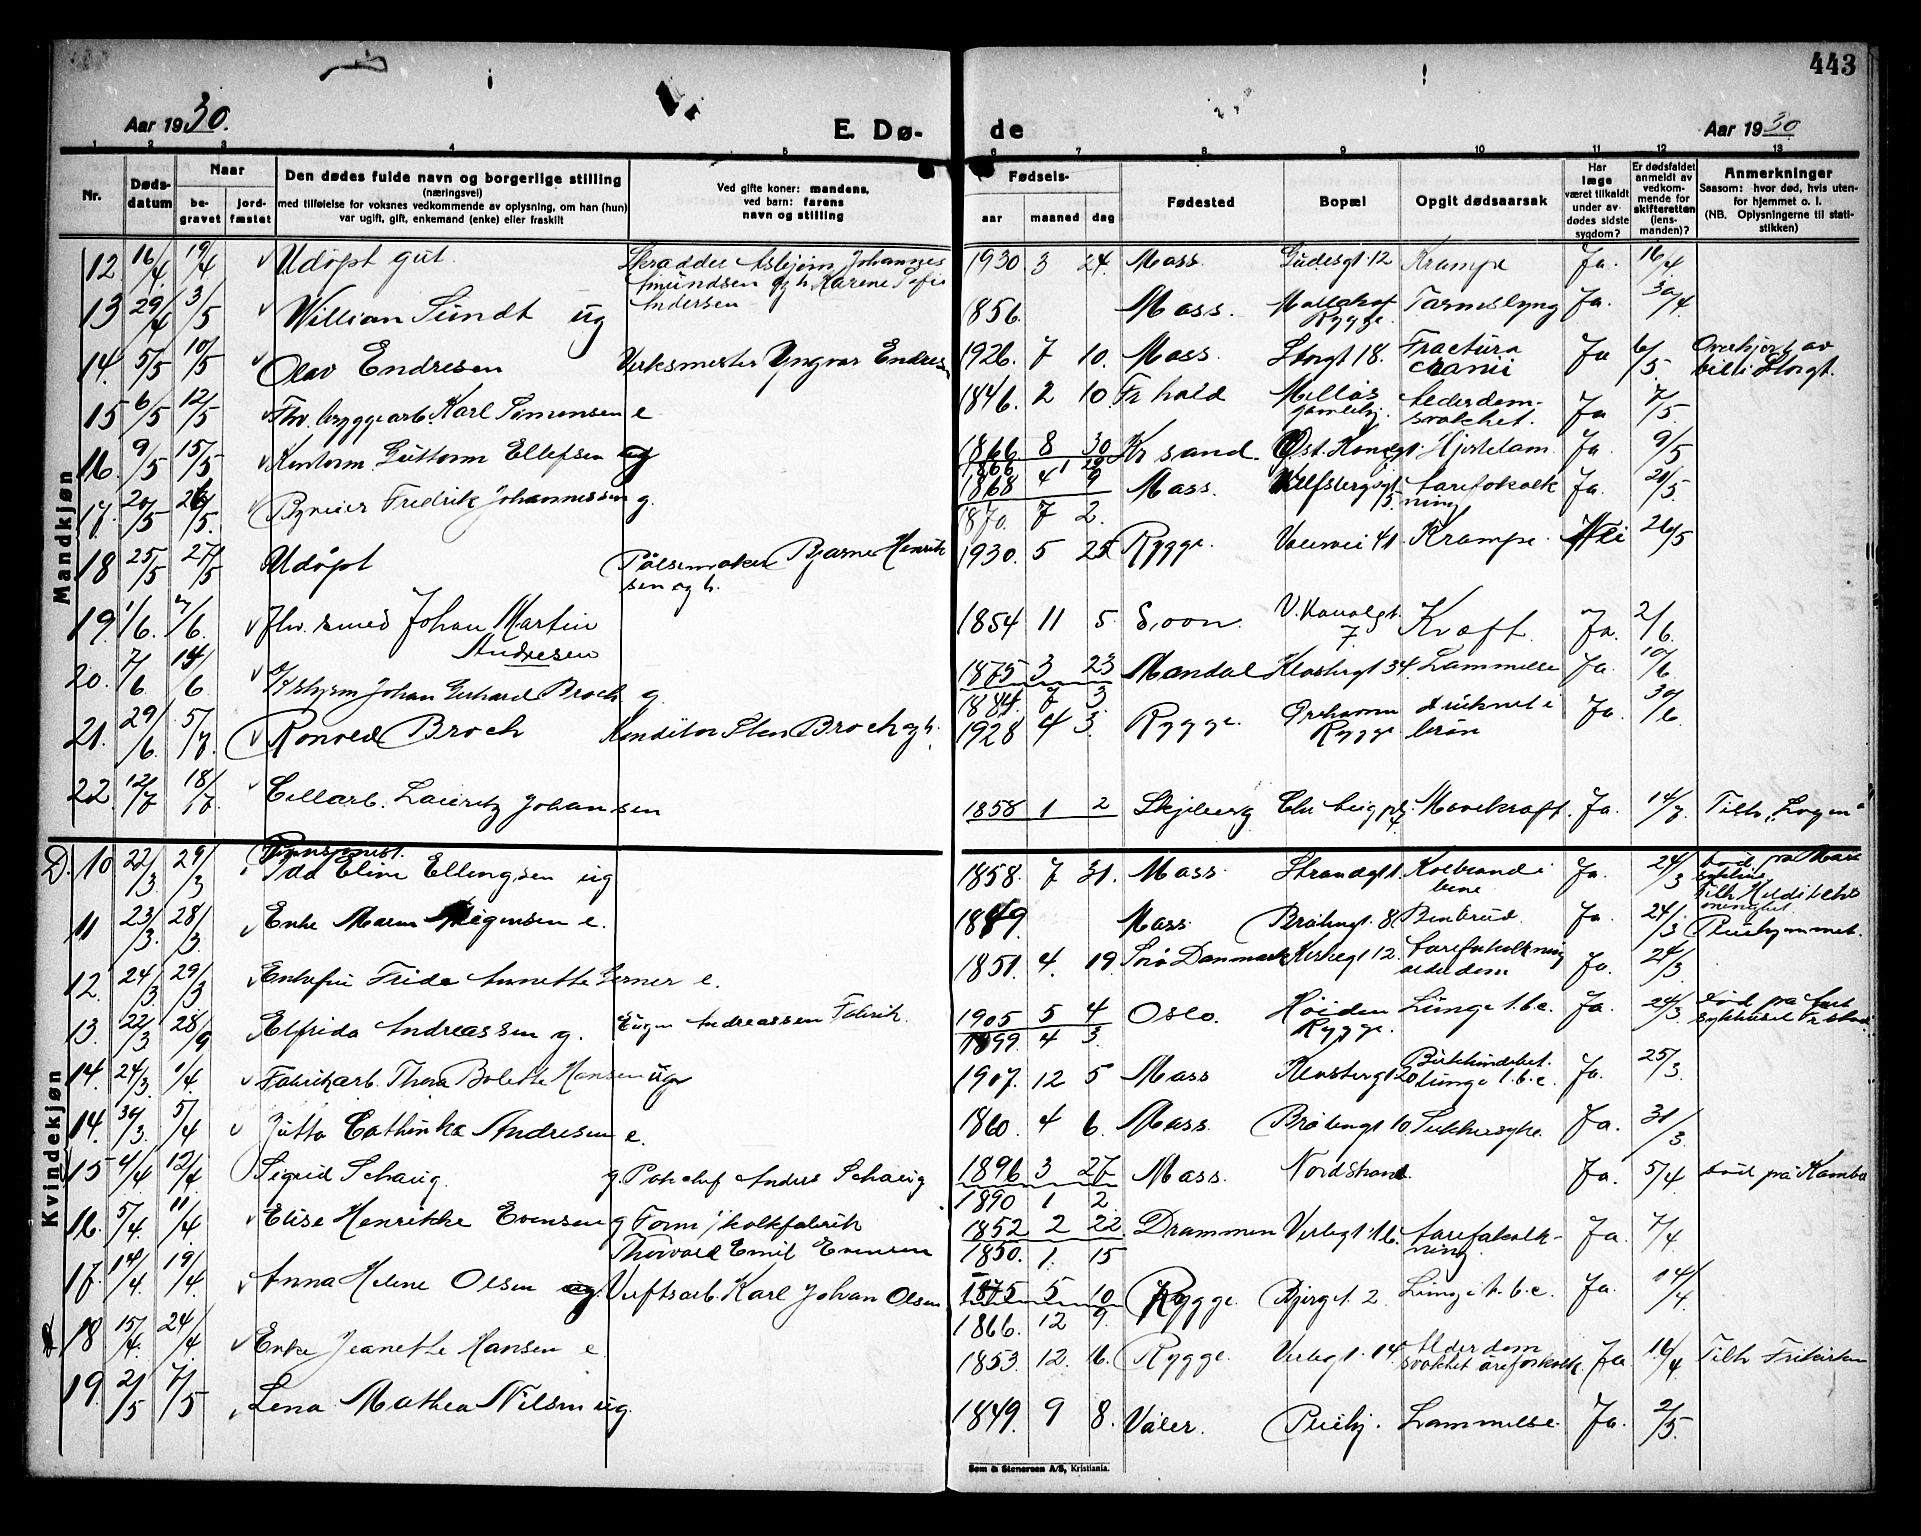 443
Aar 1930.
E. Dø- de
Aar 1930
1 2 3 4 5 6 7 8 9 10 11 12 13
Nr. Døds-datum Naar be-gravet jord-fæstet
Den dødes fulde navn og borgerlige stilling
(næringsvei)
med tilføielse for voksnes vedkommende av oplysning, om han (hun)
var ugift, gift, enkemand (enke) eller fraskilt
Ved gifte koner: mandens,
ved barn: farens
navn og stilling
Fødsels- aar maaned dag
Fødested
Bopæl
Opgit dødsaarsak
Har læge været tilkaldt under av-dødes sidste sygdom?
Er dødsfaldet anmeldt av vedkom-mende for skifteretten (lens-manden)?
Anmerkninger
Saasom: hvor død, hvis uten-for hjemmet o. l.
(NB. Oplysningerne til stati-stikken)
Mandkjøn
12 16/4 19/4 Udöpt gut. Skrædder Asbjørn Johannes Amundsen og h. Karene Sofie Andersen 1930 3 24. Moss. Gudesgt. 12 Krampe Ja. 16/4
13 29/4 3/5 William Sundt ug 1856. Moss. Rygge. Tarmslyng Ja. 30/4
14. 5/5 10/5 Olav Endresen Verksmester Yngvar Endresen 1926. 7 10. Moss. Storgt 18. Fractura cranii Ja 6/5. Overkjørt av bil i Storgt.
15 6/5 12/5 Fhv. bryggearb. Karl Simensen e 1846. 2 10. Fr.hald Melløs Alderdom-svakhet. Ja 7/5.
16. 9/5 15/5 Kontorm. Guttorm Ellefsen ug 1866 8 30 Kr sand. Øst. Kanalgt. Hjertelam. Ja. 9/5
1868 4 9 Moss.
17. 20/5 26/5. Bypleier Fredrik Johannessen g. Ulfsbergsgt 5. Aareforkalkning Ja. 20/5.
1870. 7 2.
18 25/5 27/5 Udöpt Pölsemaker Bjarne Henriksen og h. 1930. 5 25 Rygge. Vaalervei 41. Krampe. Nei 26/5
19. 1/6. 7/6. Fhv. smed Johan Martin Andresen 1854 11 5. Soon. V. Kanalgt. 7. Kræft. Ja. 2/6.
20. 7/6 14/6 Johan Gerhard Broch g. 1875 3 23 Mandal Klostergt 34. Lammelse Ja. 10/6
1884. 7 3
21. 29/6. 5/7. Ronald Broch Konditor Sten Broch og h. 1928 4 3. Rygge. Orehavn Rygge druknet i brøn Ja. 30/6.
22. 12/7 18/7. Cellarb. Lauritz Johansen 1858 1 2 Skjeberg Chr. bergpl. 4. Mavekræft. Ja. 14/7. Tilh. „Logen"
Kvindekjøn
D. 10 22/3 29/3 Pensjonist. Ida Eline Ellingsen ug 1858. 7 31. Moss. Strandgt 1. Koldbrand i bene Ja. 24/3 död på Moss sykehus Tilh. Meldisthes menighet.
11 23/3. 28/3 Enke Maren Mogensen e. 1849. Moss Bråtengt. 8 Benbrud. Ja 24/3 Pleiehjemmet.
12. 24/3 29/3 Enkefru Frida Annette Gerner e. 1851. 4. 19. Sorø Danmark Kirkegt 12. Aareforkalkning alderdom Ja. 24/3.
13. 22/3 28/9 Elfrida Andreassen g. Eugen Andreassen Fabrik. 1905 5 4 Oslo. Høiden Rygge. Lunge t.b.c. Ja. 24/3. död på Amt sykehuset Fr.stad
1899. 4 3.
14. 24/3. 1/4. Fabrikarb. Thora Bolette Hansen ug 1907. 12 5 Moss Klostergt 20 Lunge t.b.c. Ja. 25/3.
14. 30/3. 5/4 Jutta Cathinka Andresen e. 1860. 4 6. Moss. Bråtengt 10 Sukkersyke. Ja. 31/3.
15 4/4 12/4 Sigrid Schaug. g. Politichef Anders Schaug 1896 3 27 Moss. Nordstrand. Ja. 5/4 död på Kambo
1890 1 2.
16. 5/4. 11/4 Elise Henrikke Evensen g Form. / kalkfabrik Thorvald Emil Evensen 1852 2 22. Drammen Verlegt. 16. Aareforkalk-ning Ja. 7/4.
1850. 1. 15
17. 14/4. 19/4. Anna Helene Olsen g. Verftsarb. Karl Johan Olsen 1875 5 10 Rygge. Bjergt. 2. Lunge t.b.c. Ja. 14/4.
1866. 12 9.
18 15/4. 24/4 Enke Jeanette Hansen e. 1853. 12. 16. Rygge. Verlegt. 14. Alderdom svakhet åreforkalk. Ja 16/4 Tilh. Frikirken
19. 2/5 7/5 Lena Mathea Nilsen ug. 1849. 9 8. Våler. Pleiehj. Lammelse. Ja. 2/5.
Sem & Stenersen A/S, Kristiania.